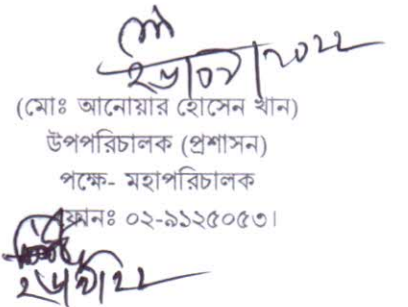 ২৮/০৭/২০২২
(মোঃ আনোয়ার হোসেন খান)
উপপরিচালক (প্রশাসন)
পক্ষে- মহাপরিচালক
ফোনঃ ০২-৯১২৫০৫৩।